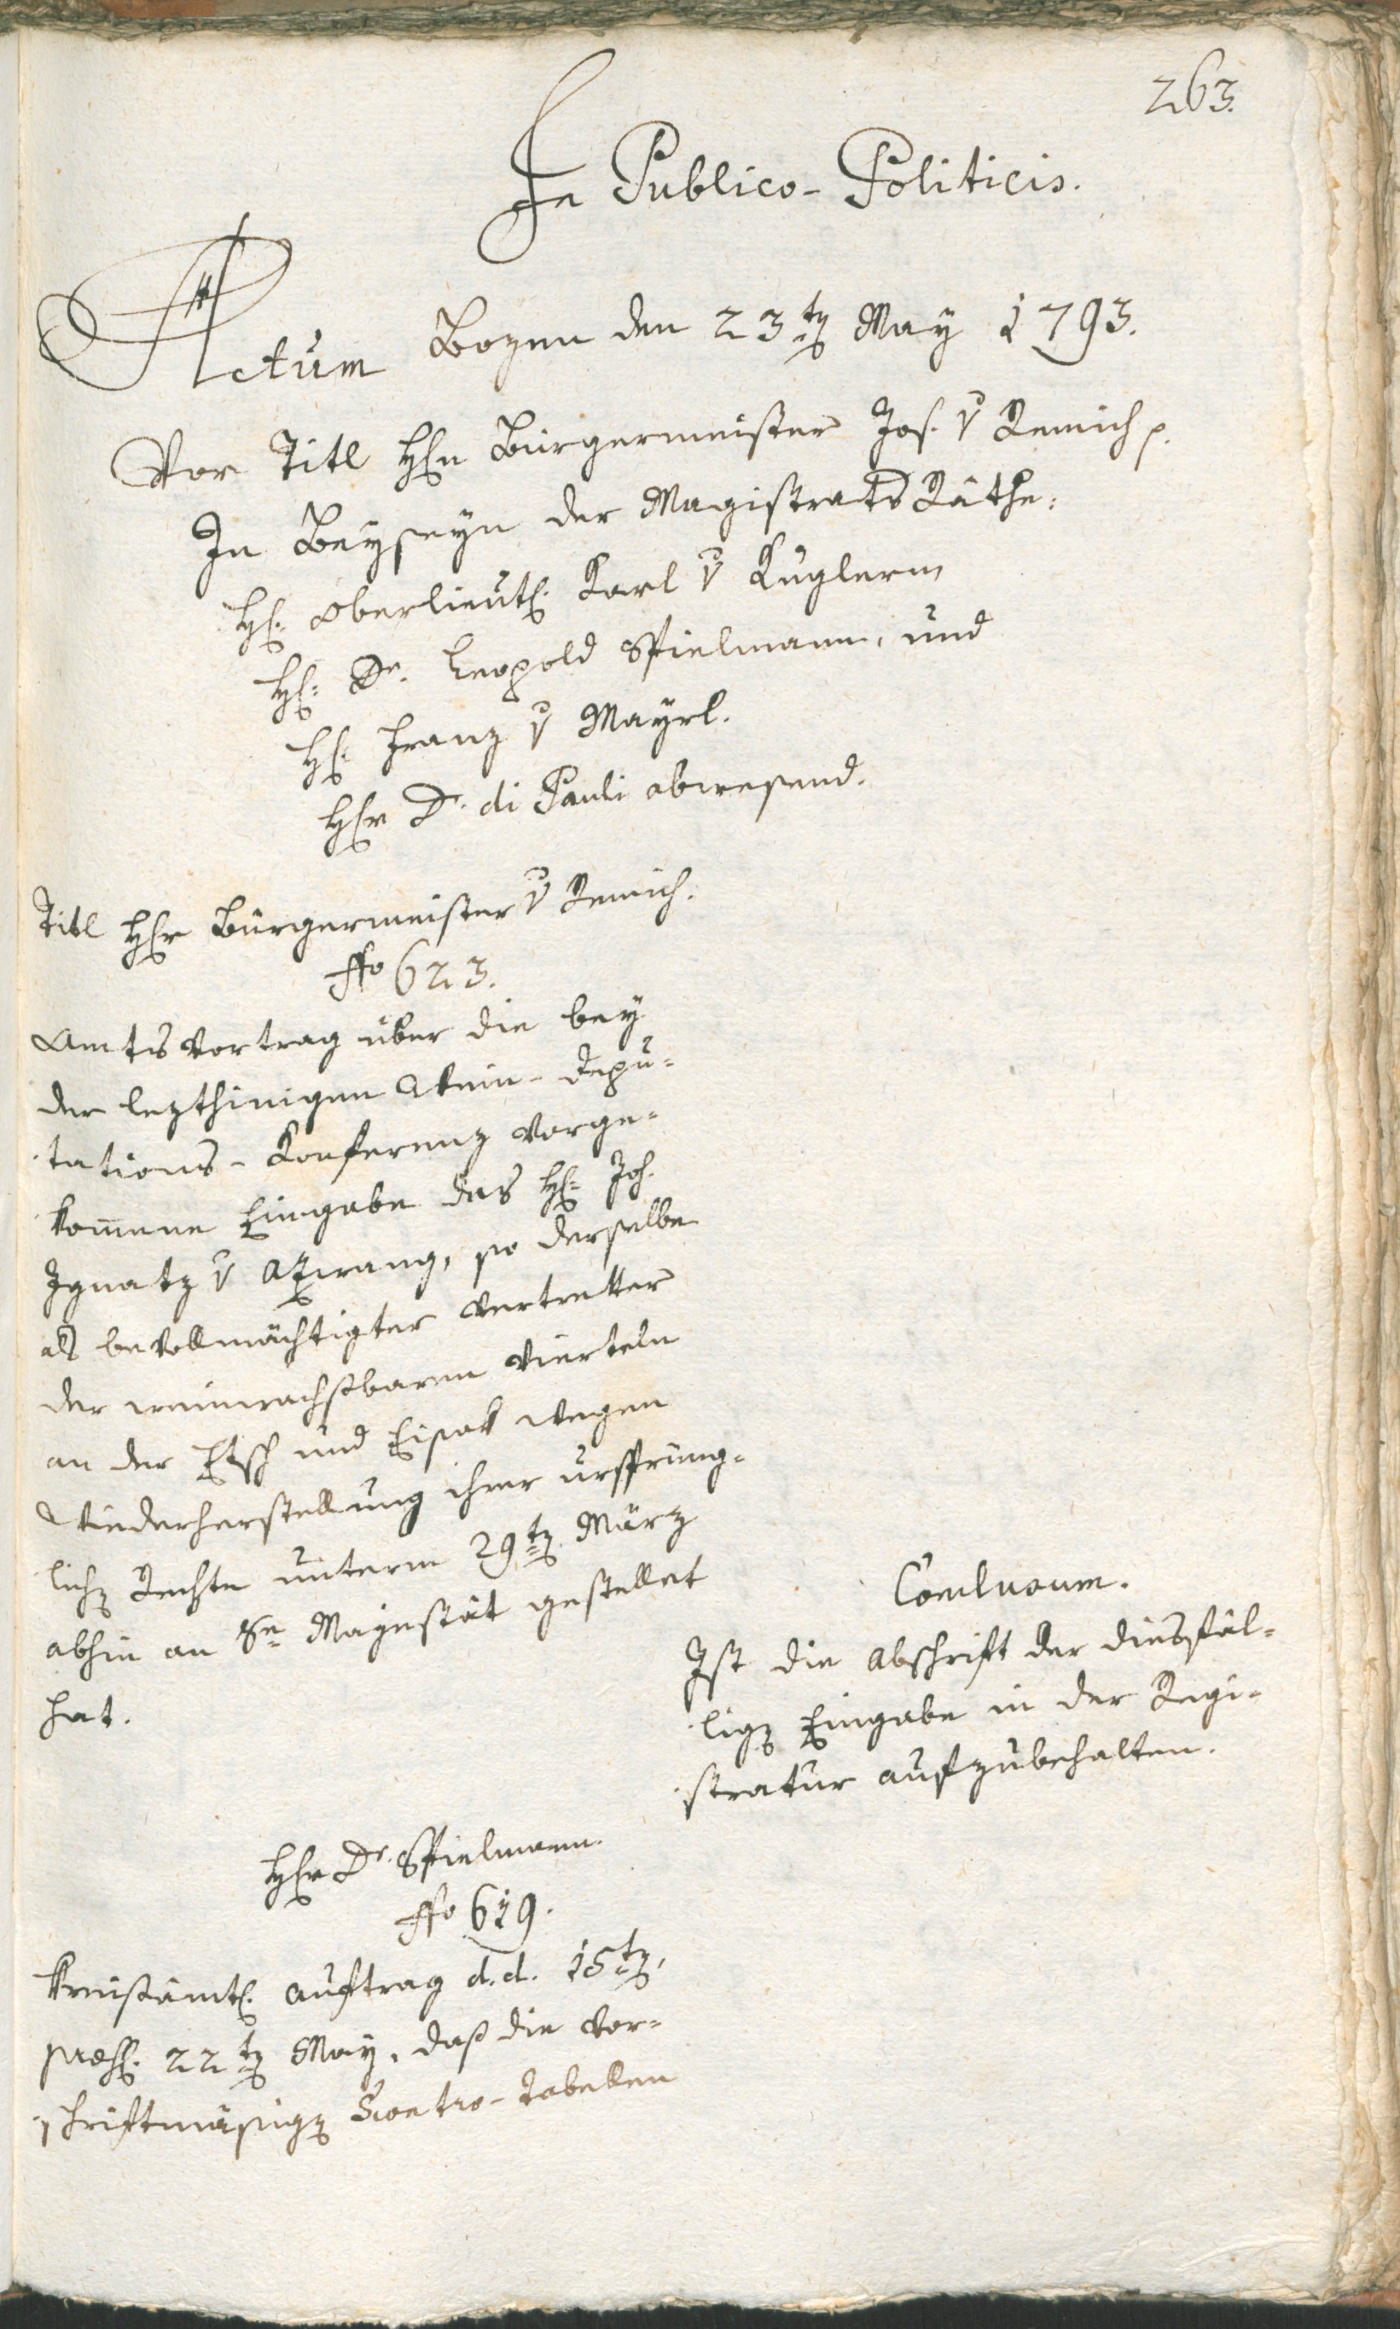 263.
In Publico-Politicis.
Actum Bozen den 23ten May 1793.
Vor Titl Hhn Bürgermeister Jos. v Remich p.
In Beyseyn der Magistrats Räthe:
Hh: Oberlieut: Karl v Kuglern
Hh: Dr. Leopold Spielmann, und
Hh: Franz v Mayrl.
Hhr Dr. di Pauli abwesend.
Titl Hhr Bürgermeister v Remich.
No 623.
Amtsvortrag über die bey
der lezthinigen Wein-Depu-
tations-Konferenz vorge-
komene Eingabe des Hh: Joh.
Ignatz v Atzwang, so derselbe
als bevollmächtigter Vertretter
der weinwachsbaren Vierteln
an der Etsch und Eisak wegen
Wiederherstellung ihrer ursprüng-
lichen Rechte unterm 29ten März
abhin an Se Mayestät gestellet
hat.
Conclusum.
Ist die Abschrift der diesfäl-
ligen Eingabe in der Regi-
stratur aufzubehalten.
Hhr Dr. Spielmann.
No 619.
Kreisämtl. Auftrag d.d. 15ten,
præs. 22ten May, daß die vor-
schriftmäsigen Scontro-Tabellen